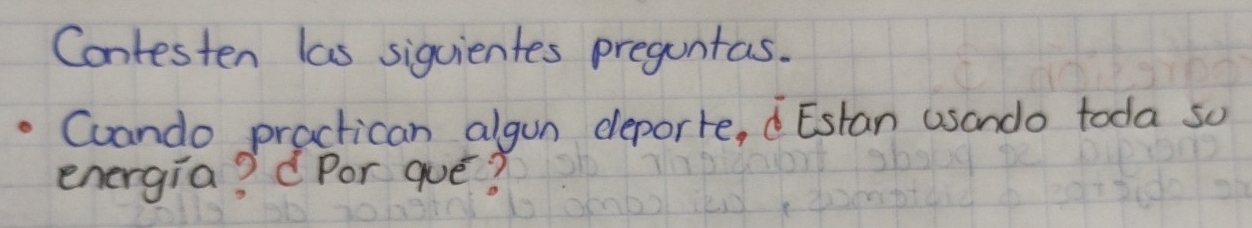 Contesten las siguientes preguntas.
• Cuando practican algun deporte, ¿Estan usando toda su
energía? ¿Por qué?